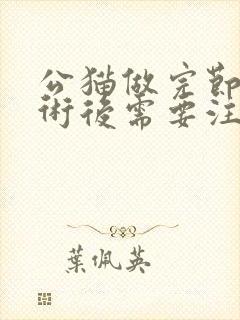 公猫做完節
術後需要注
葉佩英